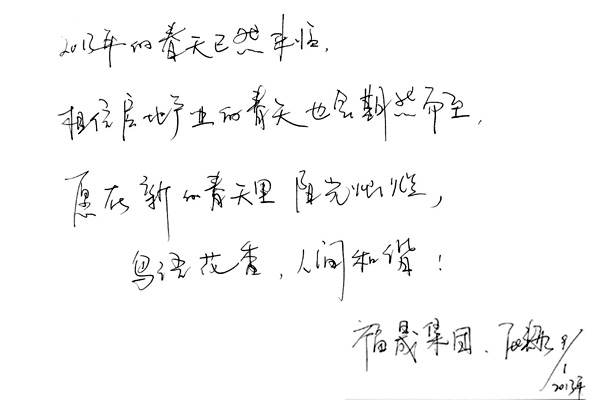 2013年的春天已然来临,
相信房地产业的春天也会期然而至,
愿在新的春天里 阳光灿烂,
鸟语花香,人间和谐!
福晟集团、
9/1
2013年